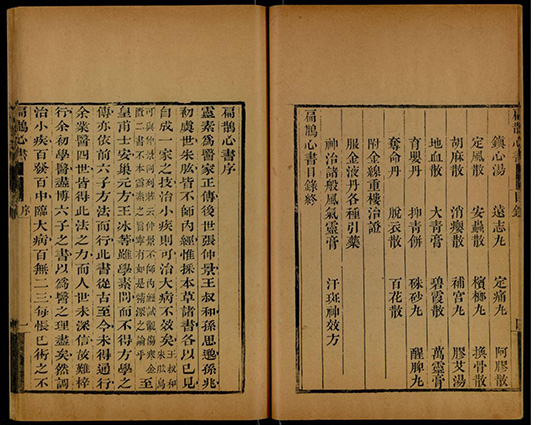 扁鵲心書 目錄
鎮心湯 遠志丸 定痛丸 阿膠散
定風散 安蟲散 檳榔丸 換骨散
胡麻散 消癭散 補宮丸 膠艾湯
地血散 大青膏 碧霞散 萬靈膏
育嬰丹 抑青餅 硃砂丸 醒脾丸
奪命丹 脫衣散 百花散
附金線重樓治證
服金液丹各種引藥
神治諸般風氣靈膏 汗斑神效方
扁鵲心書目錄終
扁鵲心書序
靈素為醫家正傳後世張仲景王叔和孫思邈孫兆
初虞世朱肱皆不師內經惟採本草諸書各以已見
自成一家之技治小疾則可治大病不效矣王叔和朱肱烏
可與仲景同列蔣云仲景不師內經試觀傷寒金
匱二書不本靈素之旨寧有如是精深之論乎至
皇甫士安巢元方王冰等雖學素問而不得方學之
傳亦依前六子方法而行此書從古至今未得通行
余業醫四世皆得此法之力而人世未深信故難梓
行余初學醫盡博六子之書以為醫之理盡矣然調
治小疾百發百中臨大病百無二三每悵已術之不
扁鵲心書 序 一